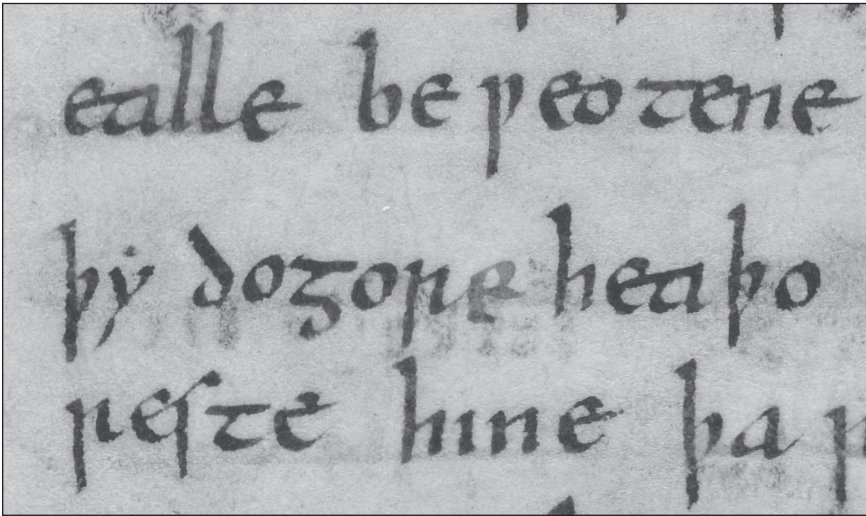 ealle be ƿeotene
þẏ dogore heaþo
reſte hine þa